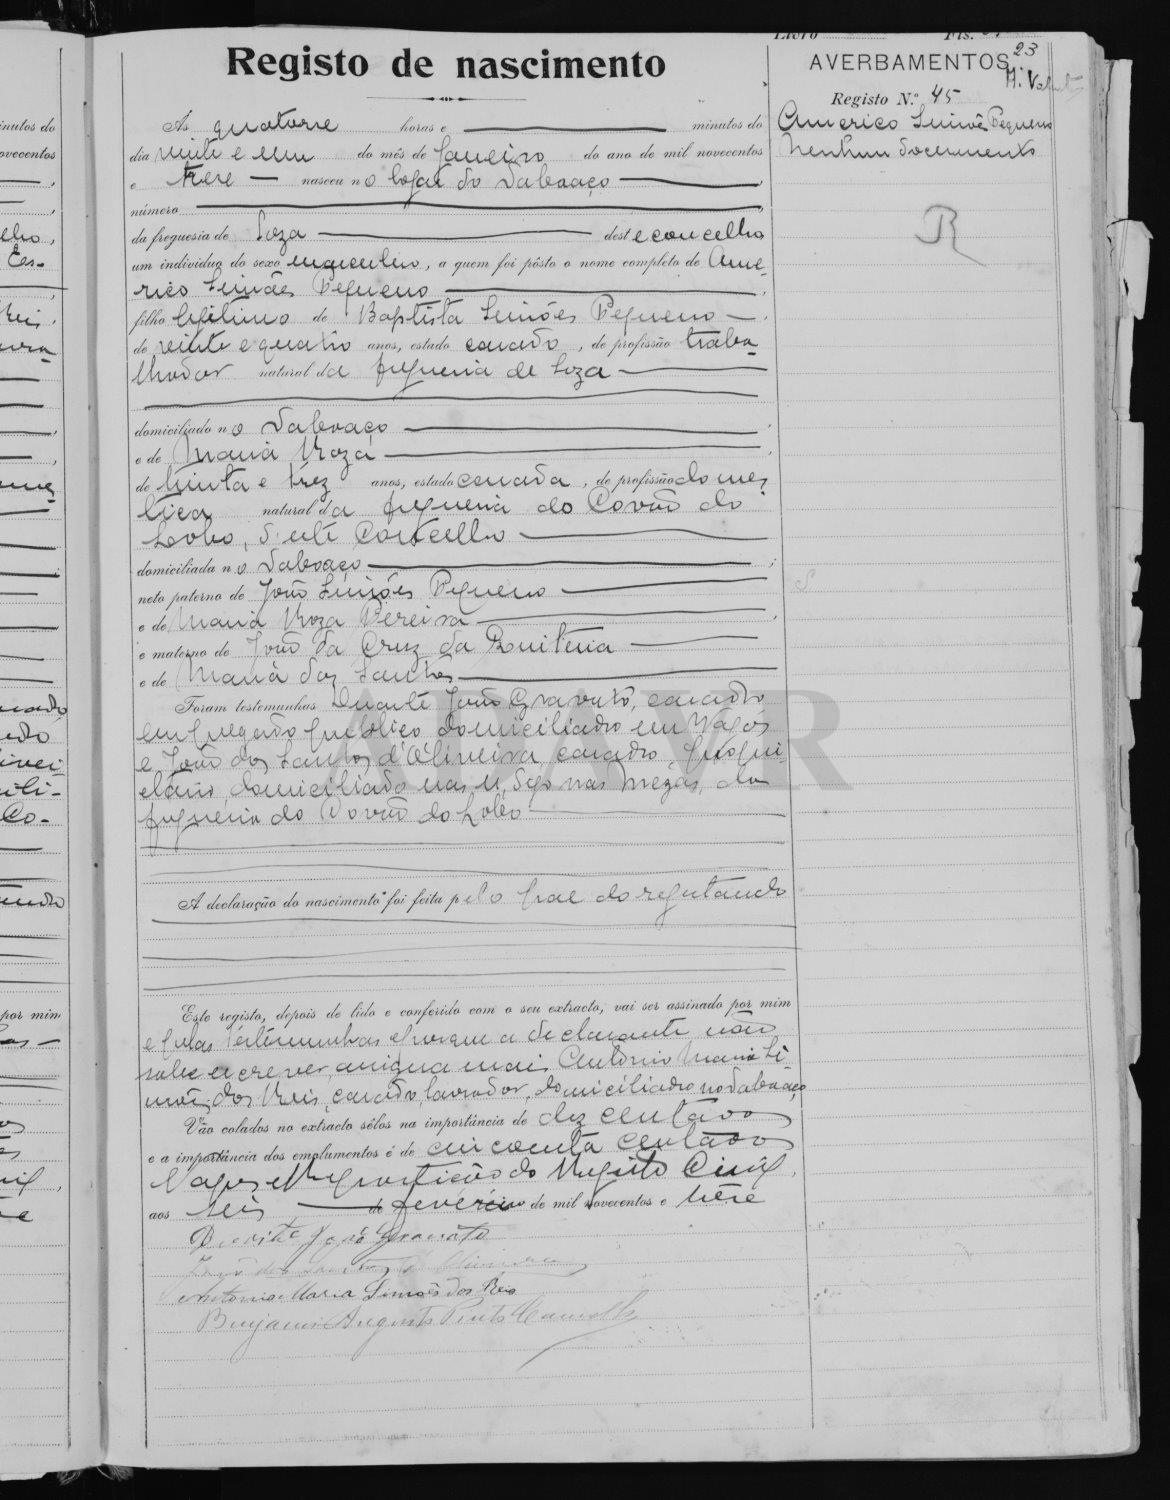 Livro Fls.
23
Registo de nascimento
AVERBAMENTOS
Registo N.º 45
Americo Simões Pequeno
Nenhum documento
R
Ás quatorze horas e minutos do
dia vinte e um do mês de Janeiro do ano de mil novecentos
e treze nasceu no logar do Salvaço
número
da freguesia de Soza deste concelho
um indivíduo do sexo masculino, a quem foi pôsto o nome completo de Ame-
rico Simões Pequeno
filho legitimo de Baptista Simões Pequeno
de vinte e quatro anos, estado casado, de profissão traba-
lhador natural da freguesia de Soza
domiciliado no Salvaço
e de Maria Roza
de trinta e trez anos, estado casada, de profissão domes-
tica natural da freguesia do Covão do
Lobo, d'este Concelho
domiciliada no Salvaço
neto paterno de João Simões Pequeno
e de Maria Roza Pereira
e materno de João da Cruz da Quiteria
e de Maria dos Santos
Foram testemunhas Duarte João Gravato, casado
empregado publico domiciliado em Vagos
e João dos Santos d'Oliveira, casado,
domiciliado nas Mezas, da
freguesia do Covão do Lobo
A declaração do nascimento foi feita pelo pae do registando
Este registo, depois de lido e conferido com o seu extracto, vai ser assinado por mim
e pelas testemunhas e porque a declarante não
sabe escrever, assigna mais Antonio Maria Si-
mões dos Reis, casado, lavrador, domiciliado no Salvaço
Vão colados no extracto sêlos na importância de dez centavos
e a importância dos emolumentos é de cincoenta centavos
Vagos e Repartição do Registo Civil,
aos seis de fevereiro de mil novecentos e treze
Duarte João Gravato
João dos Santos d'Oliveira
Antonio Maria Simões dos Reis
Benjamin Augusto Pinto Camello